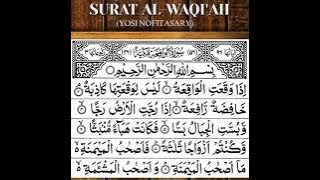 SURAT AL-WAQI'AH
(YOSI NOFITASARY)
بِسْمِ اللّٰهِ الرَّحْمٰنِ الرَّحِيْمِ
اِذَا وَقَعَتِ الْوَاقِعَةُ ۙ لَيْسَ لِوَقْعَتِهَا كَاذِبَةٌ ۘ
خَافِضَةٌ رَّافِعَةٌ ۙ اِذَا رُجَّتِ الْاَرْضُ رَجًّا ۙ
وَّبُسَّتِ الْجِبَالُ بَسًّا ۙ فَكَانَتْ هَبَاۤءً مُّنْۢبَثًّا ۙ
وَّكُنْتُمْ اَزْوَاجًا ثَلٰثَةً ۗ فَاَصْحٰبُ الْمَيْمَنَةِ
مَآ اَصْحٰبُ الْمَيْمَنَةِ ۗ وَاَصْحٰبُ الْمَشْـَٔمَةِ